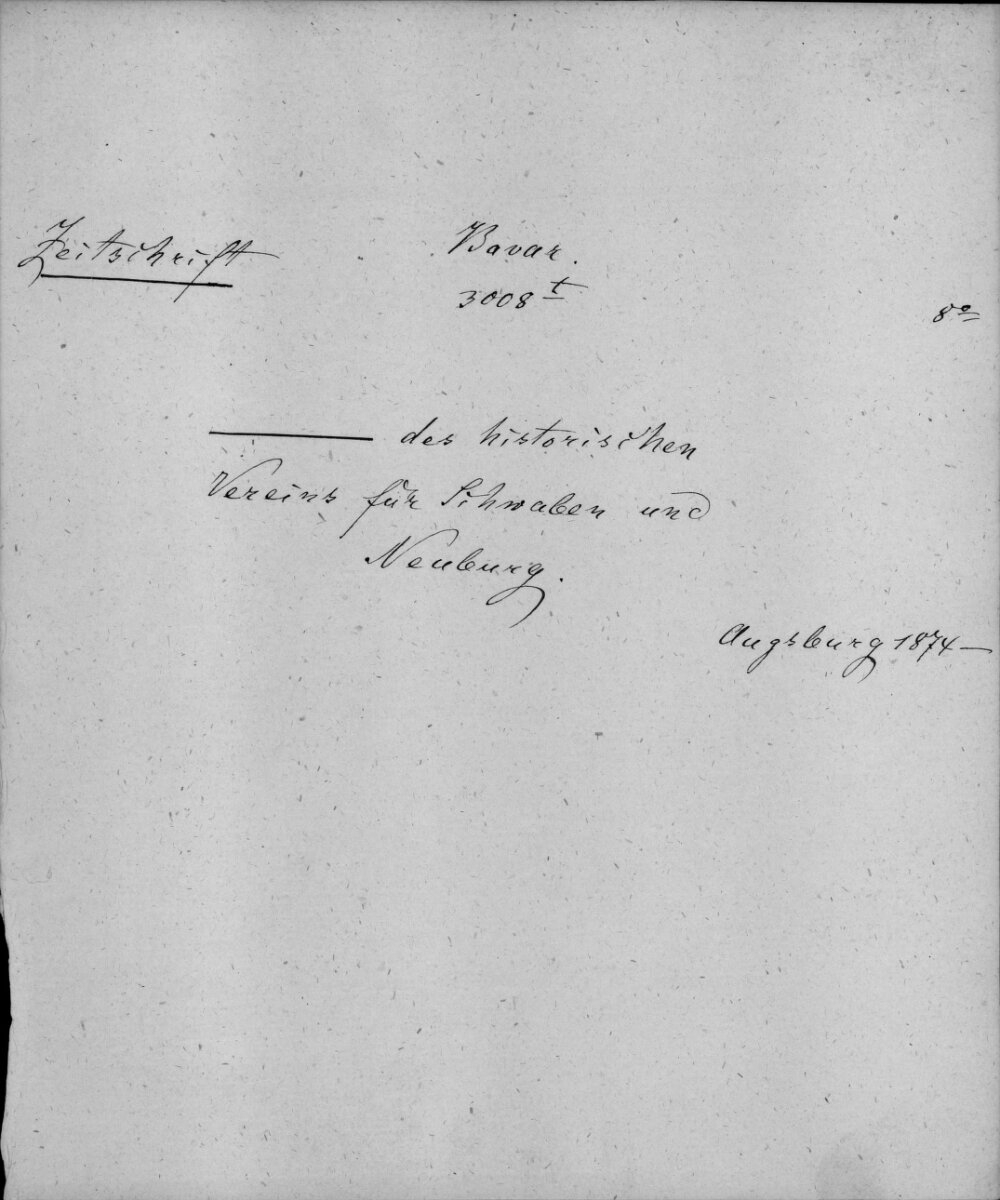 Zeitschrift
Bavar.
3008 t
8º
——— des historischen
Vereins für Schwaben und
Neuburg.
Augsburg 1874—